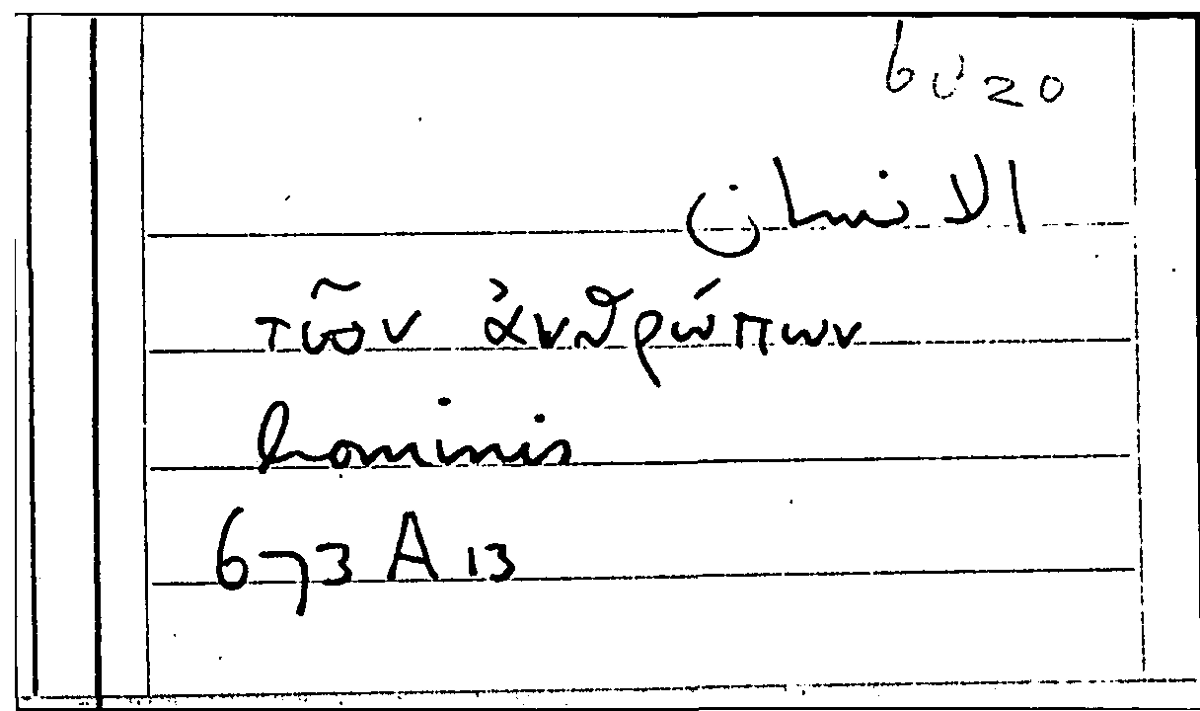 6 υ 20
الانسان
τῶν ἀνθρώπων
hominis
673 A 13